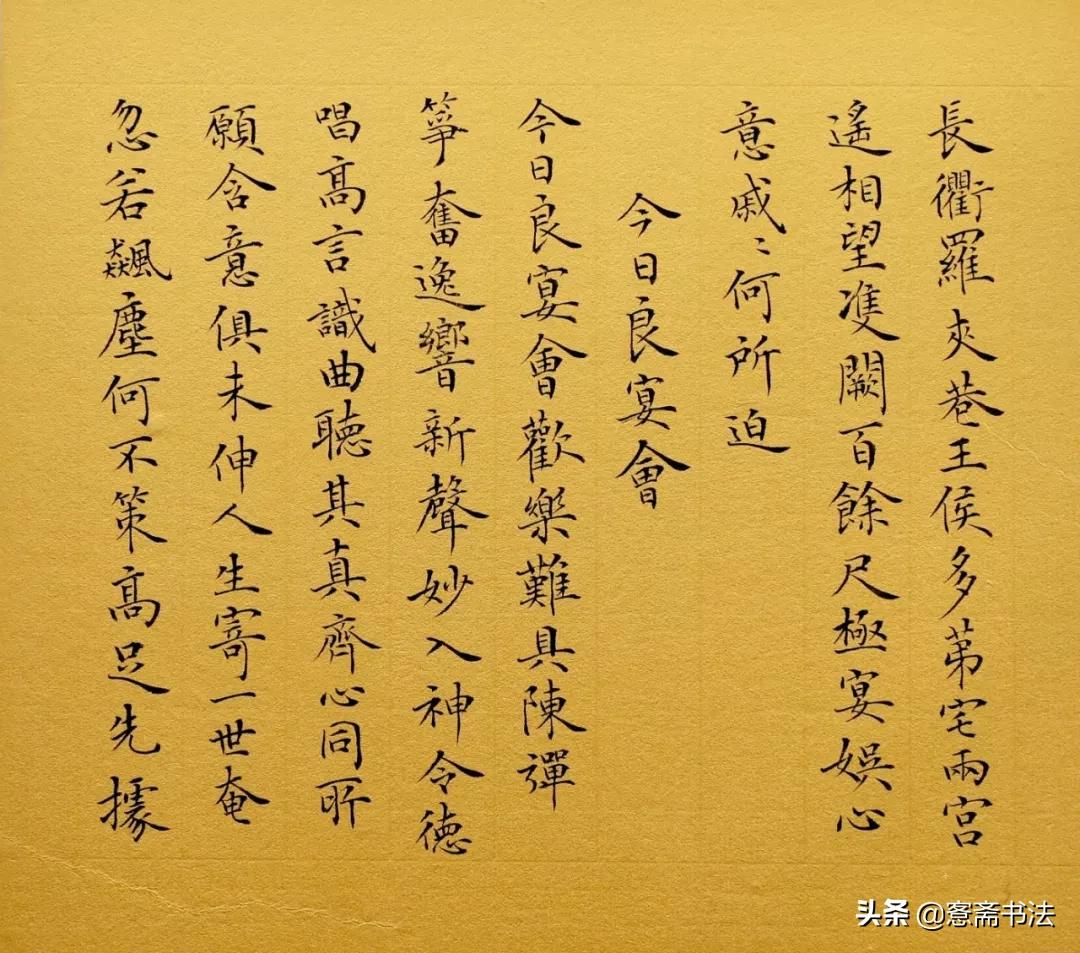 長衢羅夾巷王侯多苐宅兩宮
遙相望雙闕百餘尺極宴娛心
意戚〻何所迫
今日良宴會
今日良宴會歡樂難具陳彈
筝奮逸響新聲妙入神令德
唱高言識曲聽其真齊心同所
願含意俱未伸人生寄一世奄
忽若飇塵何不策高足先據
头条 @窓斋书法